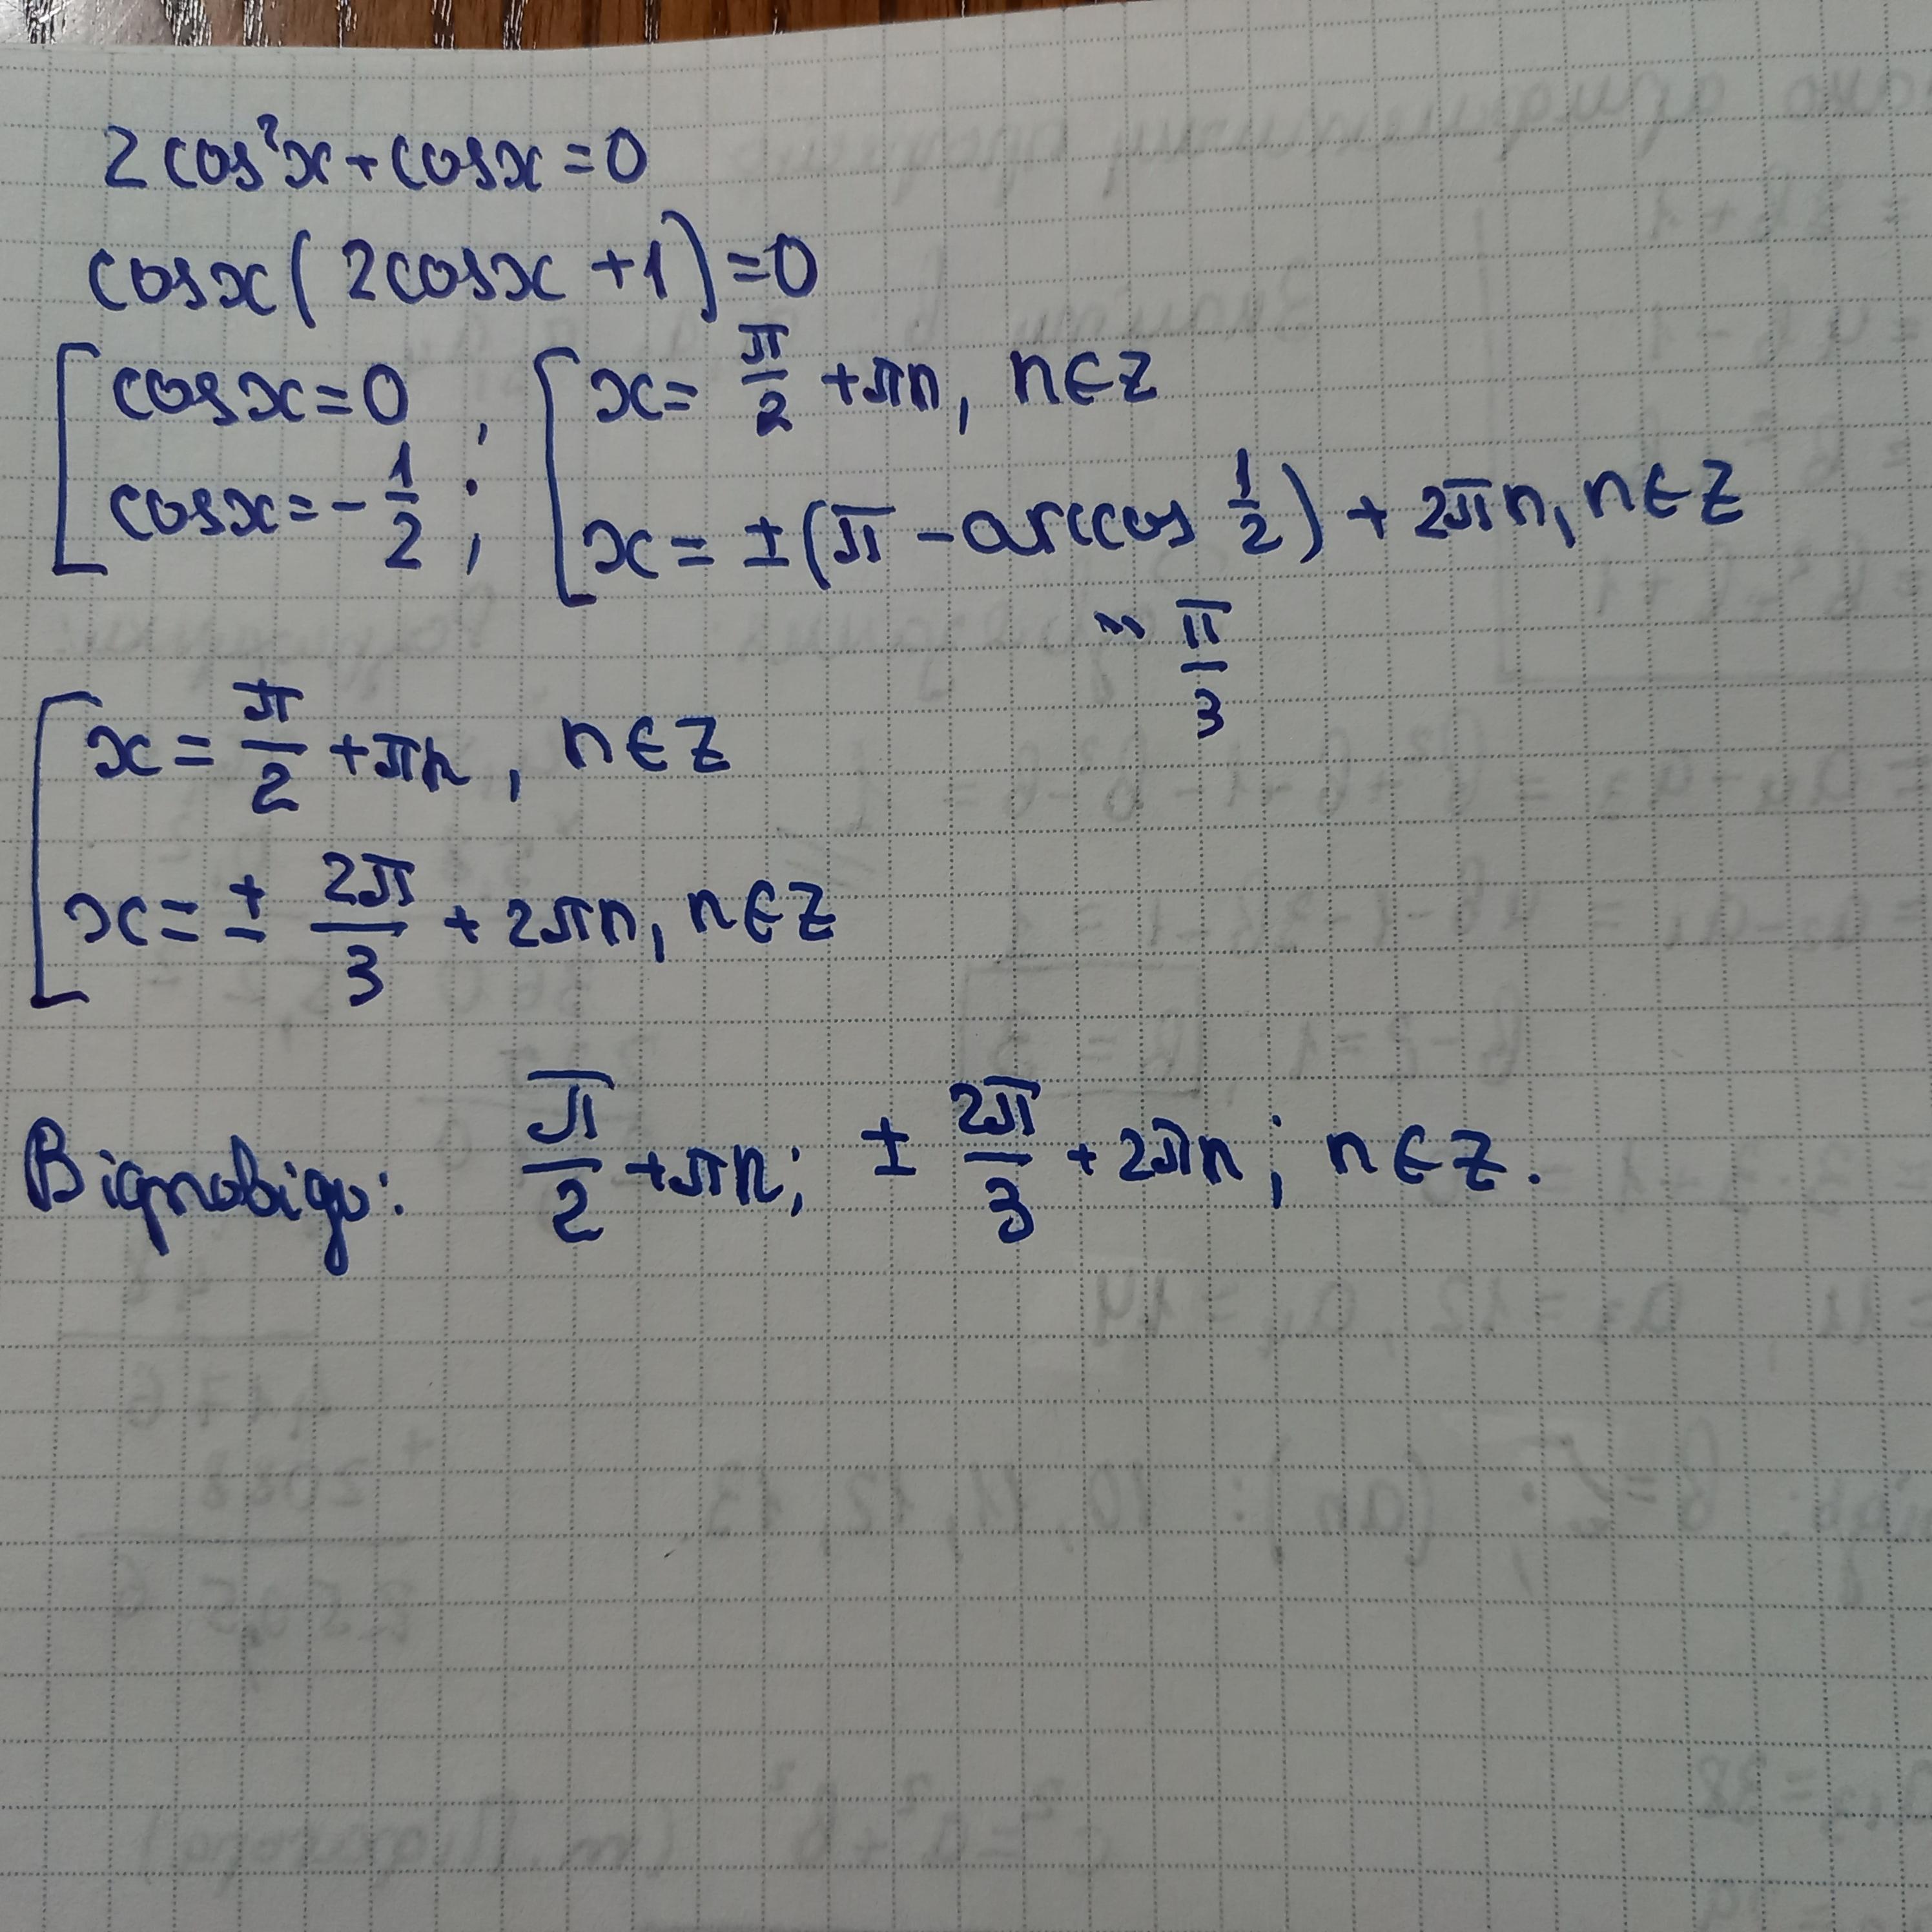 2cos²x+cosx=0
cosx(2cosx+1)=0
cosx=0 ; x=π/2+πn, n∈Z
cosx=-1/2 ; x=±(π-arccos 1/2)+2πn, n∈Z
" π/3
x=π/2+πn, n∈Z
x=± 2π/3+2πn, n∈Z
Відповідь: π/2+πn; ± 2π/3+2πn; n∈Z.